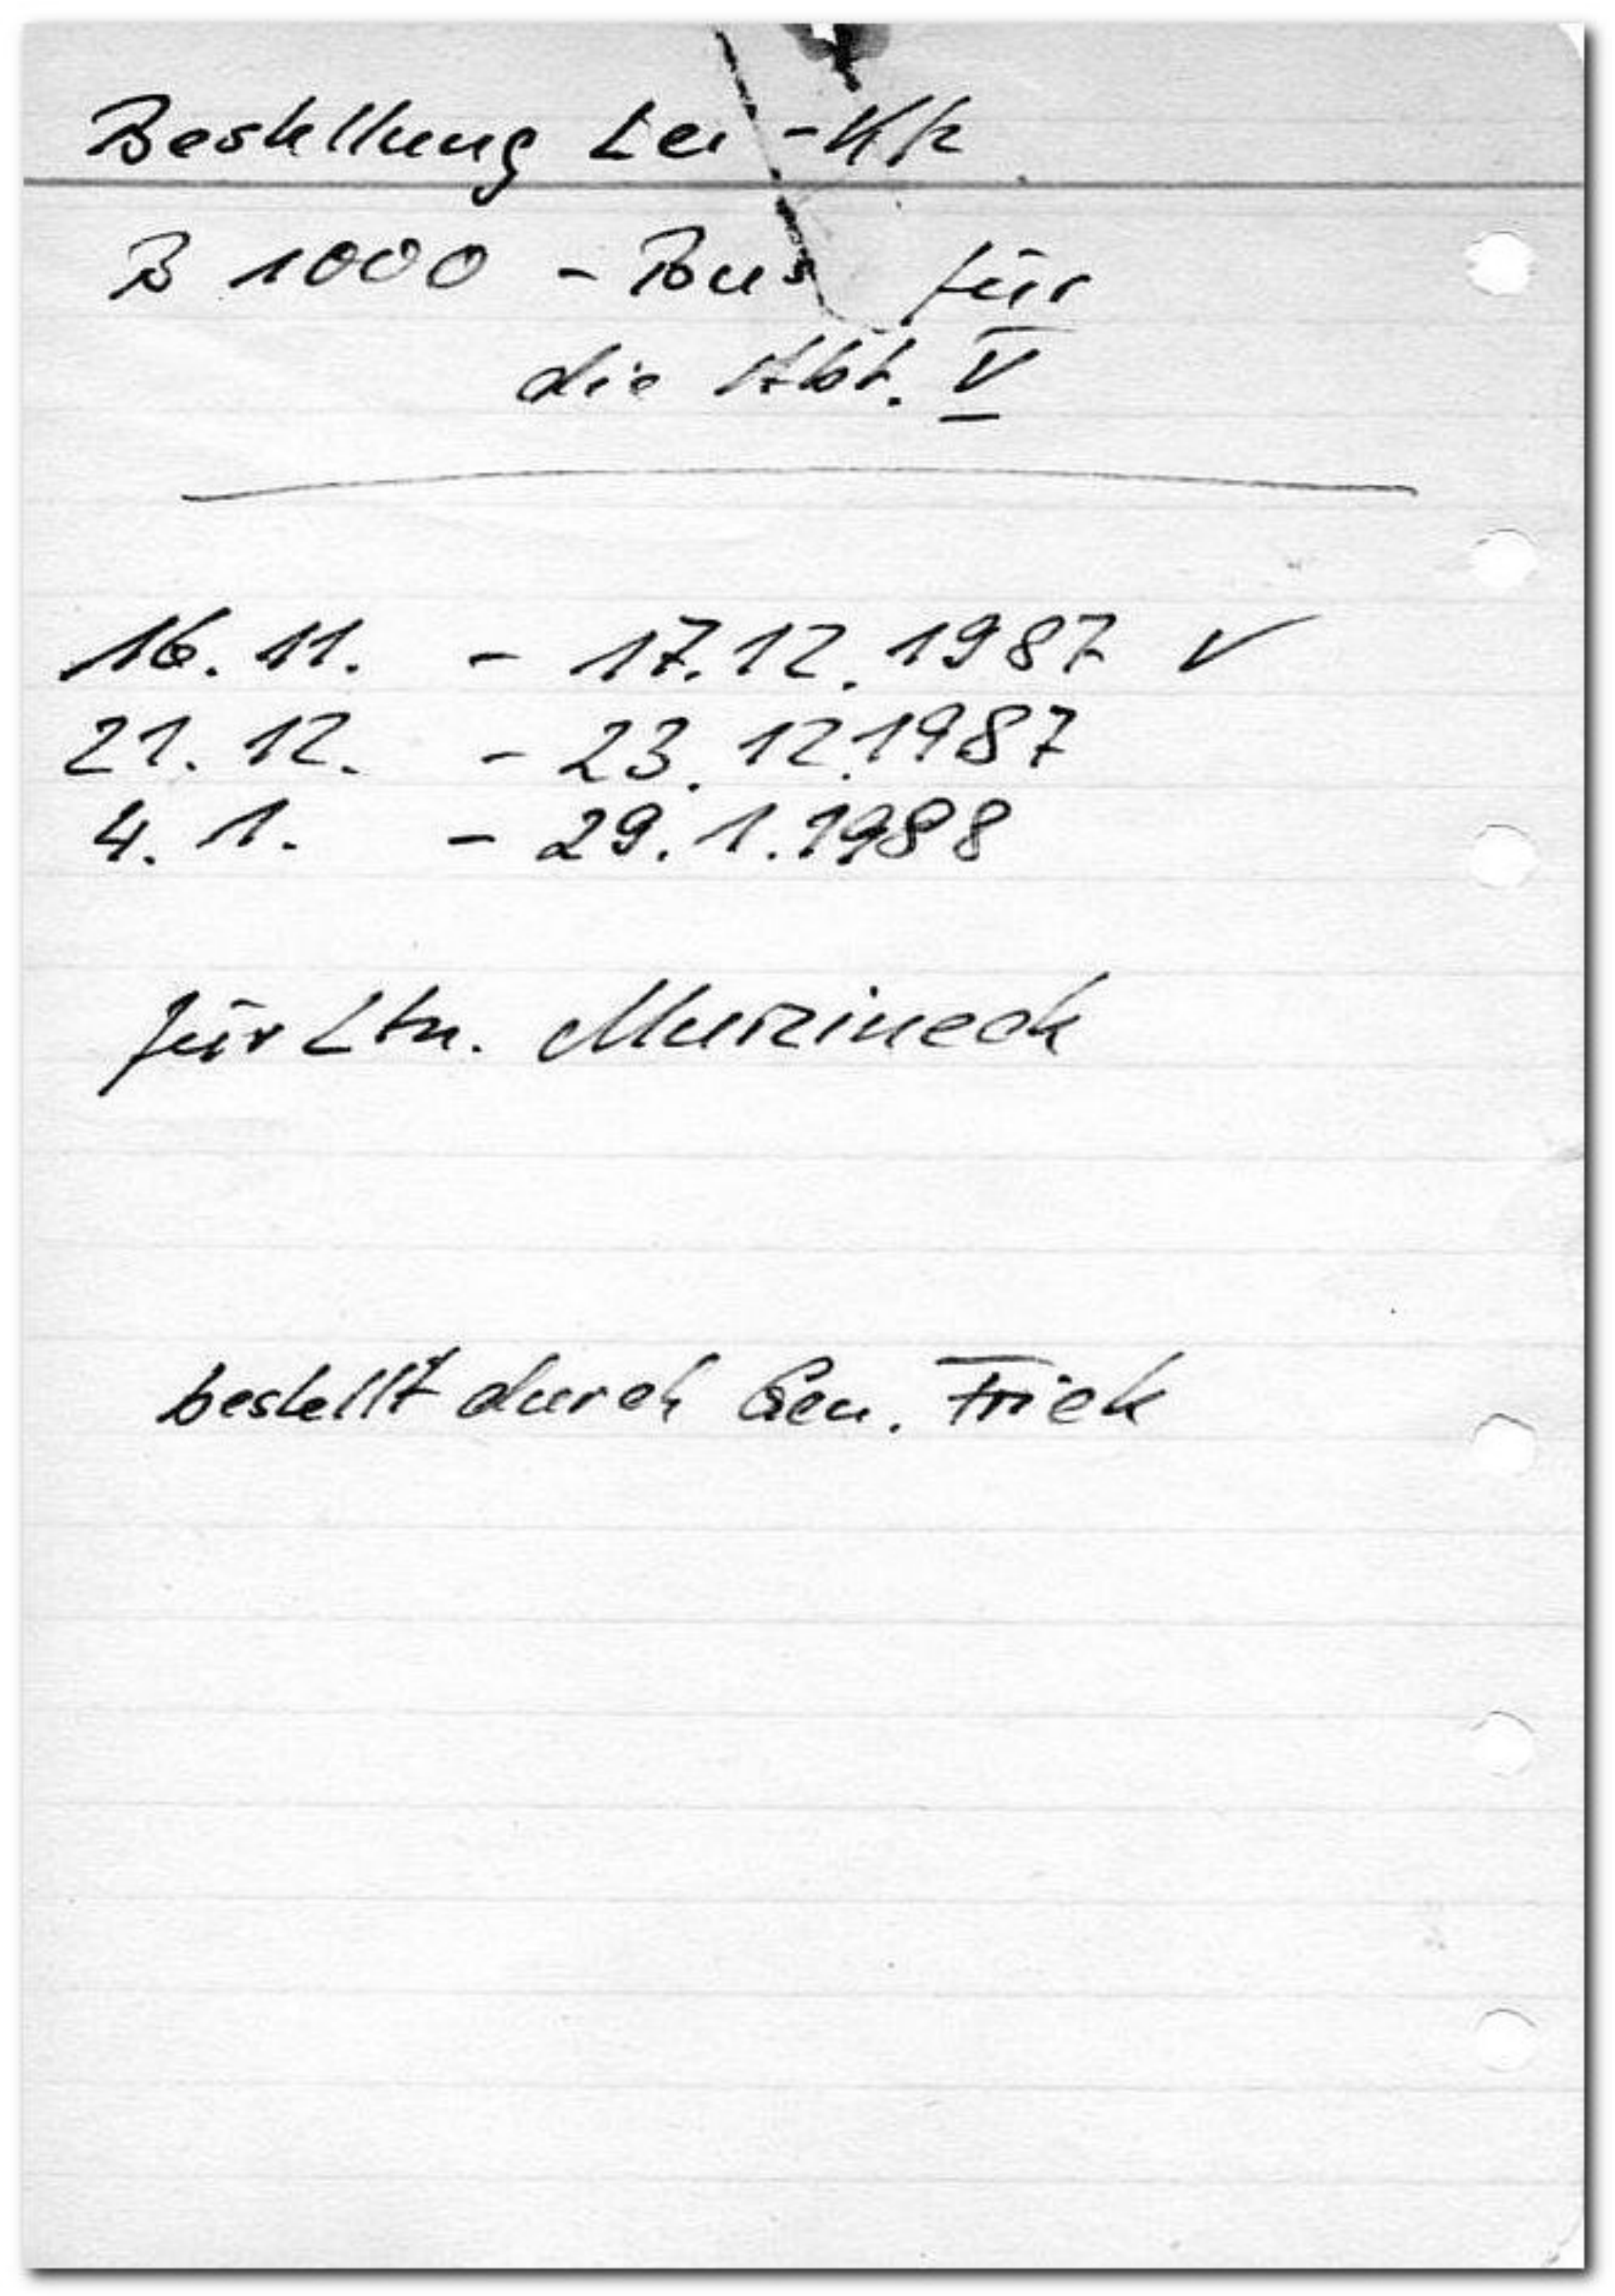 Bestellung bei -Kfz
B 1000 - Bus für
die Abt. V
16. 11. - 17.12.1987 ✓
21. 12. - 23.12.1987
4. 1. - 29.1.1988
für Ltn.
bestellt durch Gen. Frick